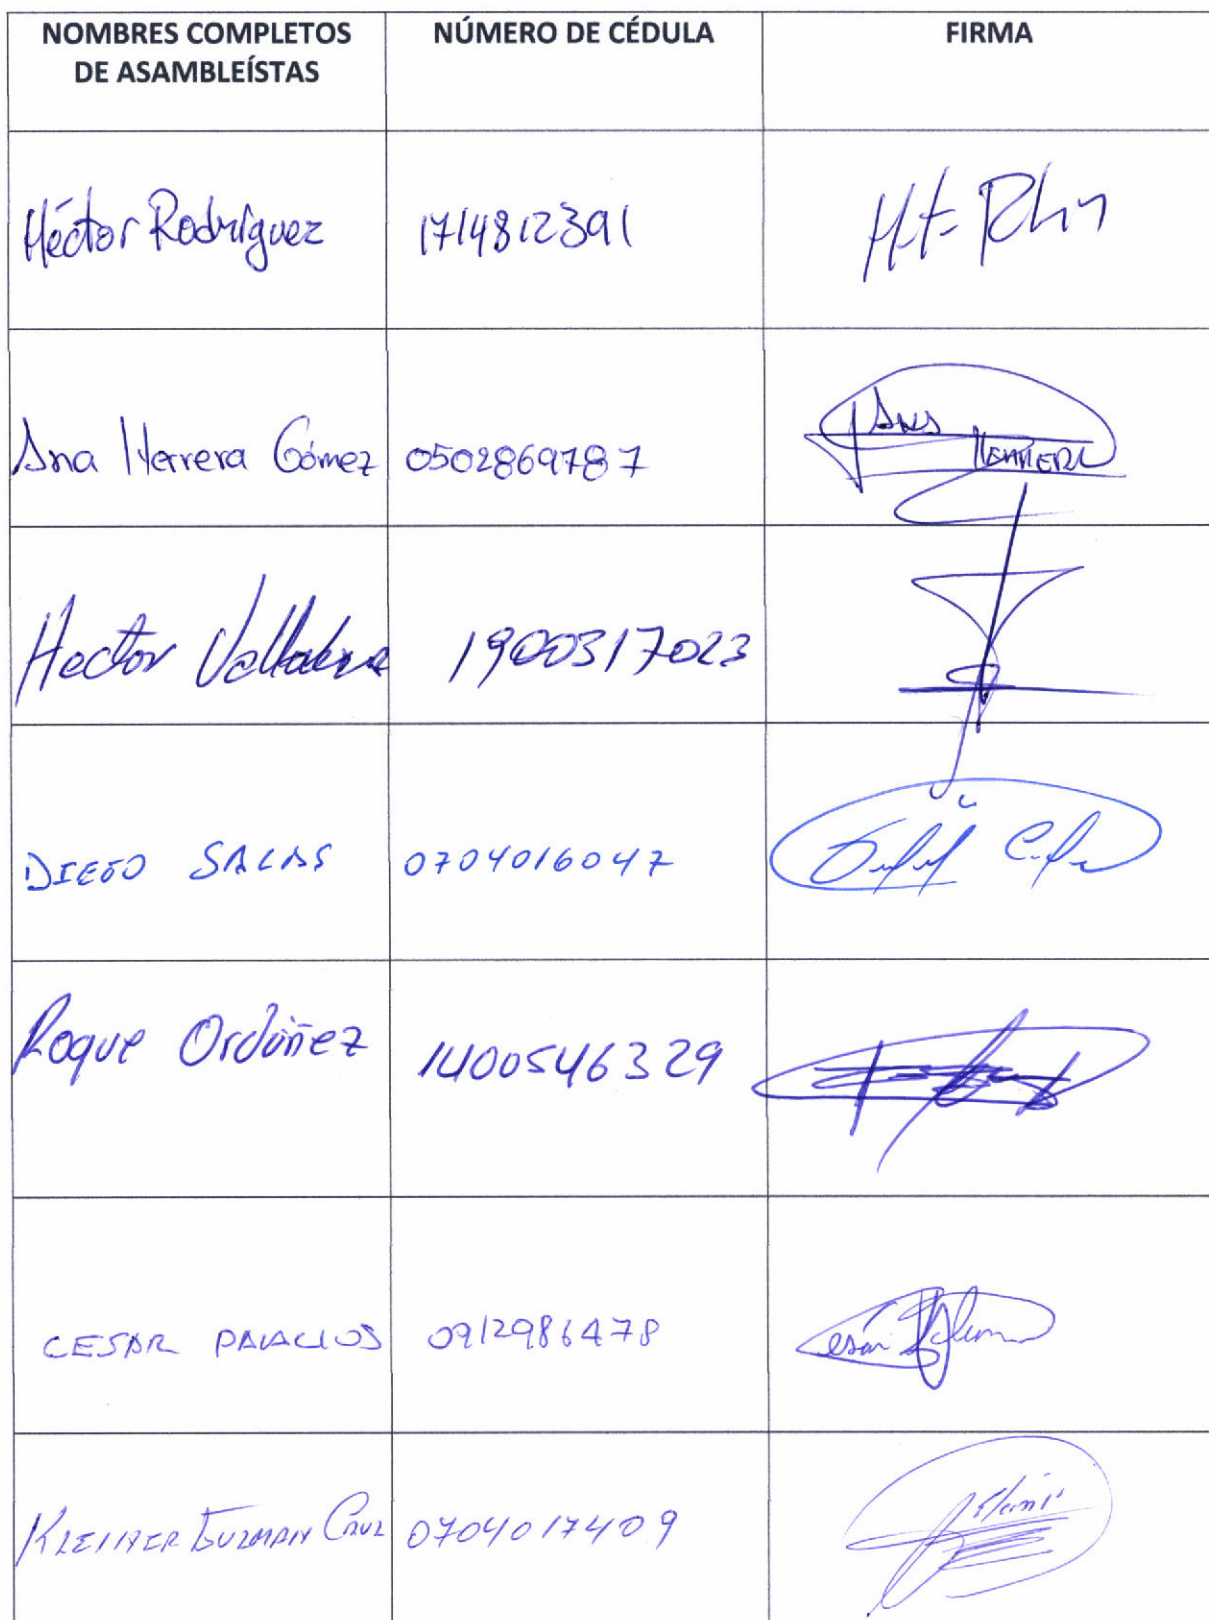 NOMBRES COMPLETOS
DE ASAMBLEÍSTAS
NÚMERO DE CÉDULA
FIRMA
Héctor Rodríguez 1714812391
Ana Herrera Gómez 0502869787 Ana Herrera
Hector 1900317023
DIEGO SALAS 0704016047
Roque Ordóñez 1400546329
CESAR PALACIOS 0912986478 Cesar
GUZMAN CRUZ 0704017409